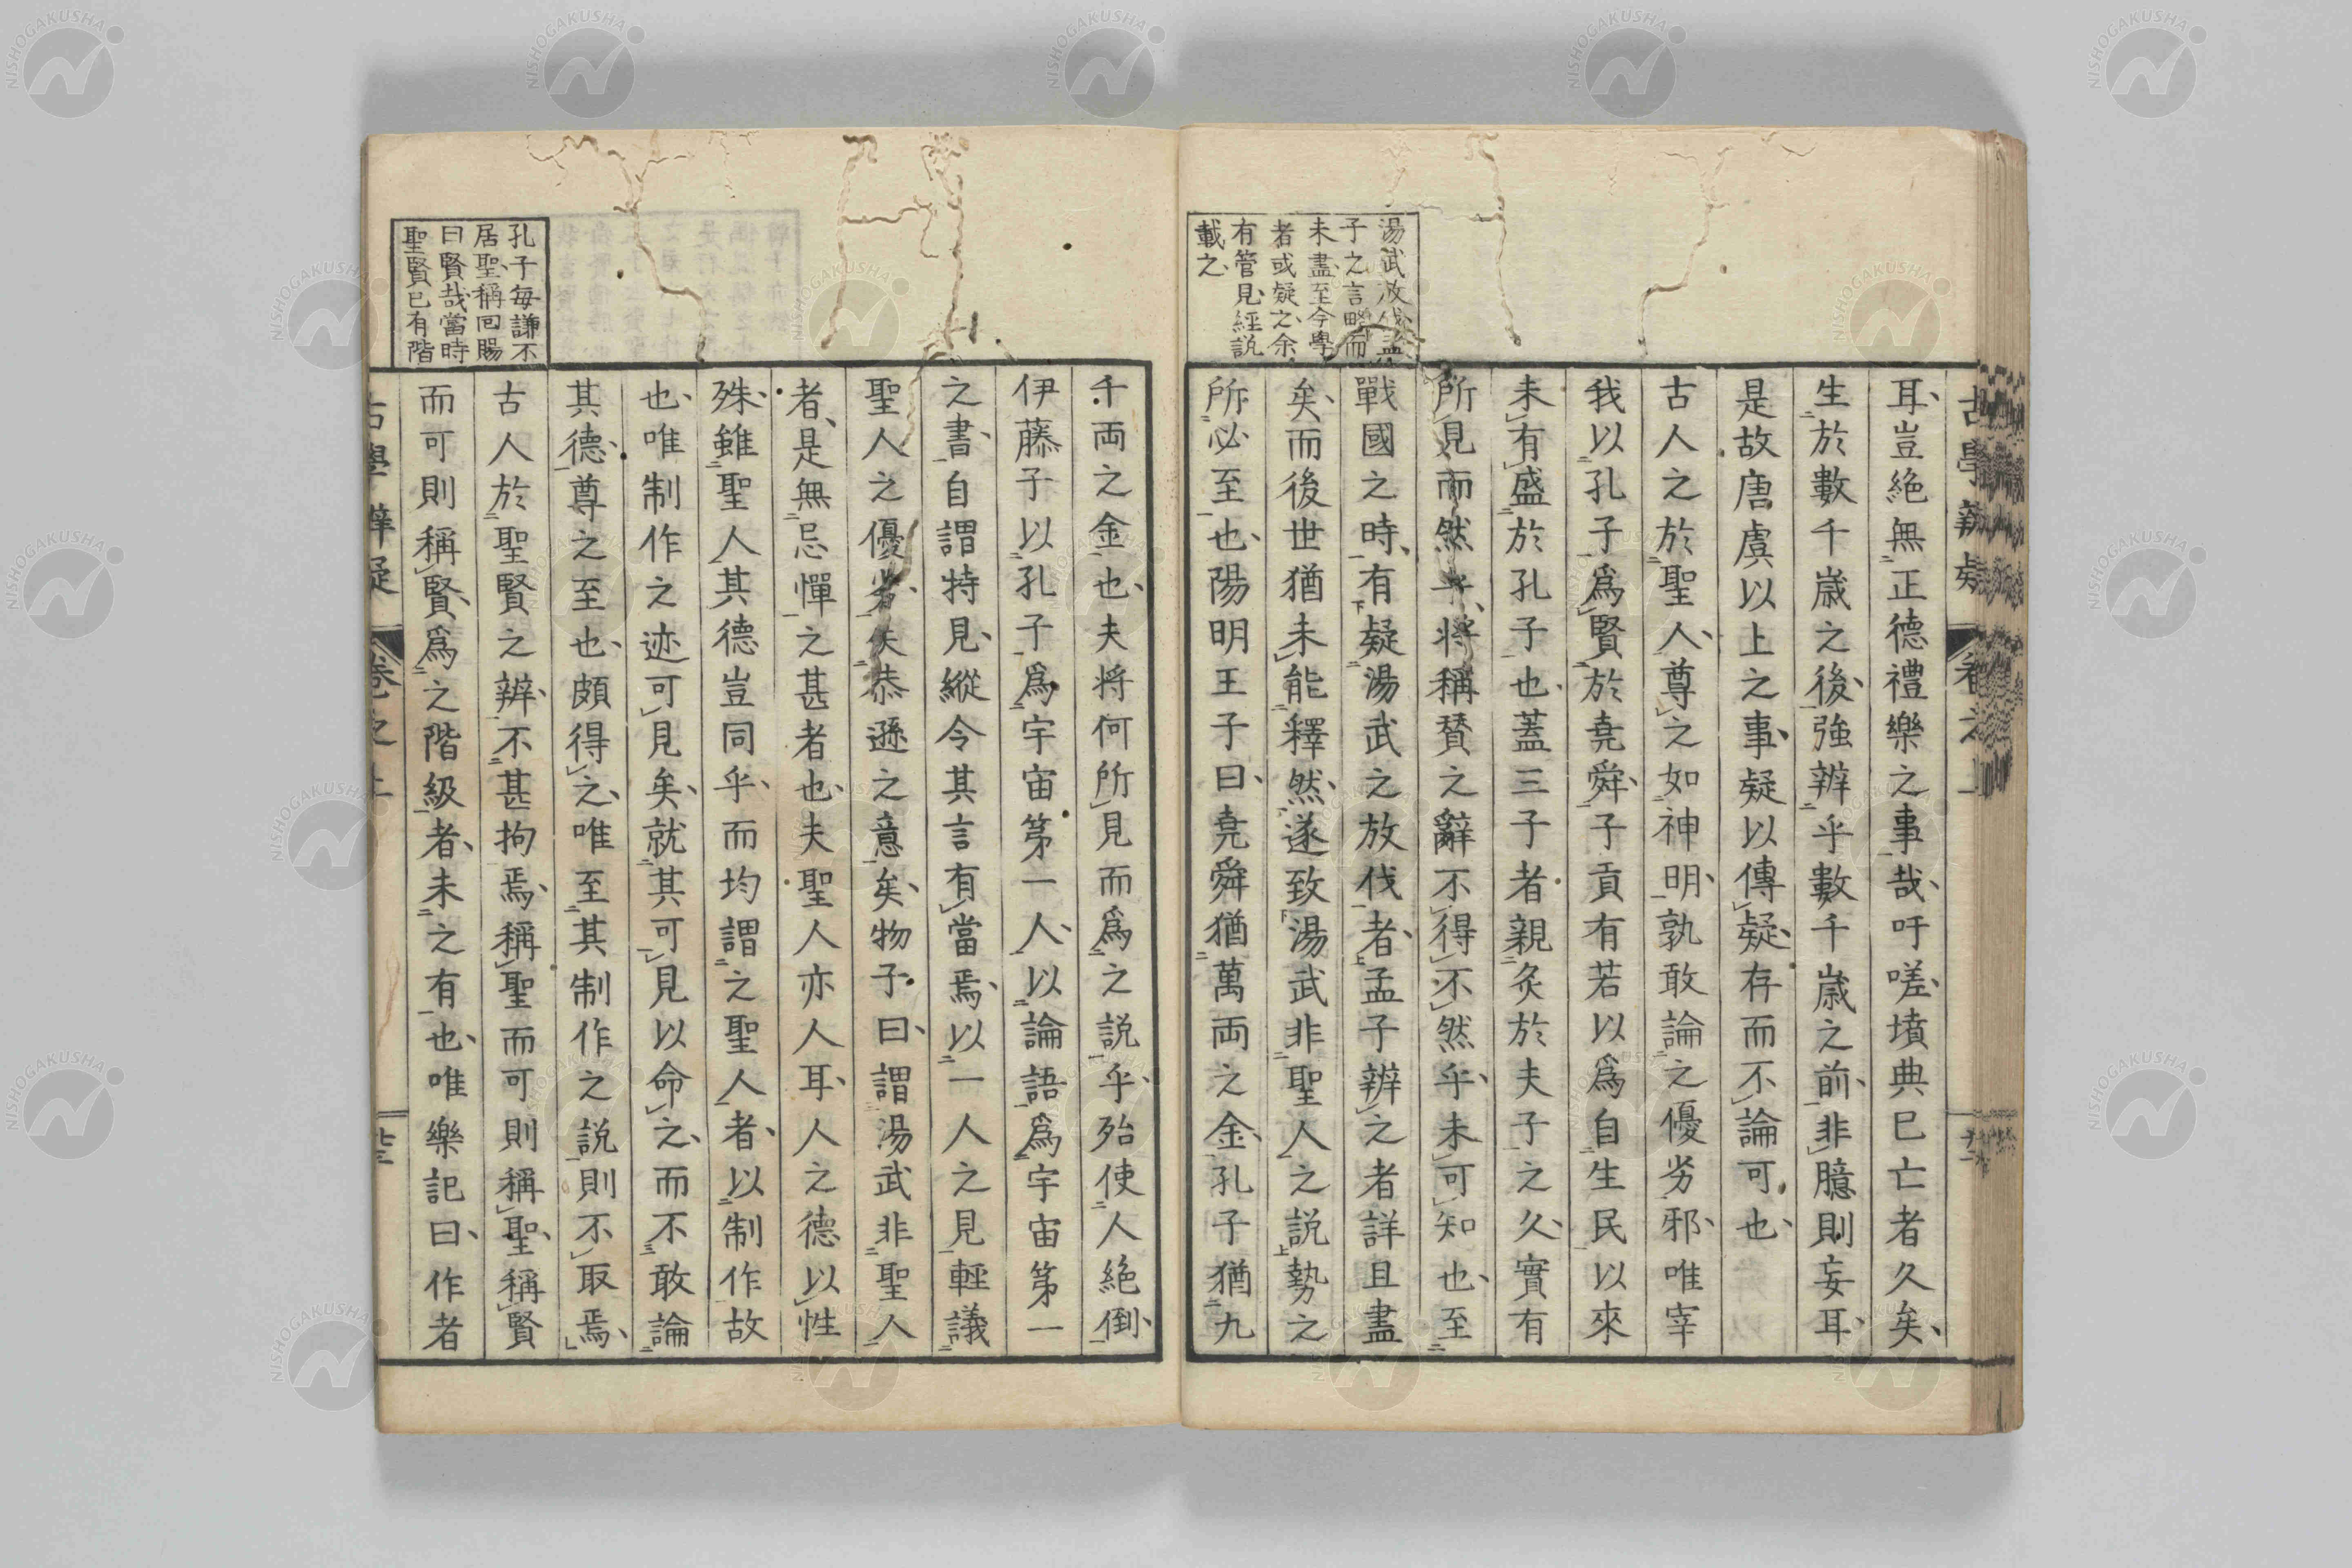 湯武放伐孟
子之言略而
未盡至今學
者或疑之余
有管見經説
載之
耳豈絶無正德禮樂之事哉吁嗟墳典已亡者久矣
生於數千歳之後強辨乎數千歳之前非臆則妄耳
是故唐虞以上之事疑以傳疑存而不論可也
古人之於聖人尊之如神明孰敢論之優劣邪唯宰
我以孔子爲賢於堯舜子貢有若以爲自生民以來
未有盛於孔子也蓋三子者親炙於夫子之久實有
所見而然乎將稱賛之辭不得不然乎未可知也至
戰國之時有疑湯武之放伐者孟子辨之者詳且盡
矣而後世猶未能釋然遂致湯武非聖人之説勢之
所必至也陽明王子曰堯舜猶萬両之金孔子猶九
孔子毎謙不
居聖稱回賜
曰賢哉當時
聖賢已有階
千両之金也夫将何所見而爲之説乎殆使人絶倒
伊藤子以孔子爲宇宙第一人以論語爲宇宙第一
之書自謂特見縱令其言有當焉以一人之見輕議
聖人之優劣失恭遜之意矣物子曰謂湯武非聖人
者是無忌憚之甚者也夫聖人亦人耳人之德以性
殊雖聖人其德豈同乎而均謂之聖人者以制作故
也唯制作之迹可見矣就其可見以命之而不敢論
其德尊之至也頗得之唯至其制作之説則不取焉
古人於聖賢之辨不甚拘焉稱聖而可則稱聖稱賢
而可則稱賢爲之階級者未之有也唯樂記曰作者
古學辨疑 卷之上